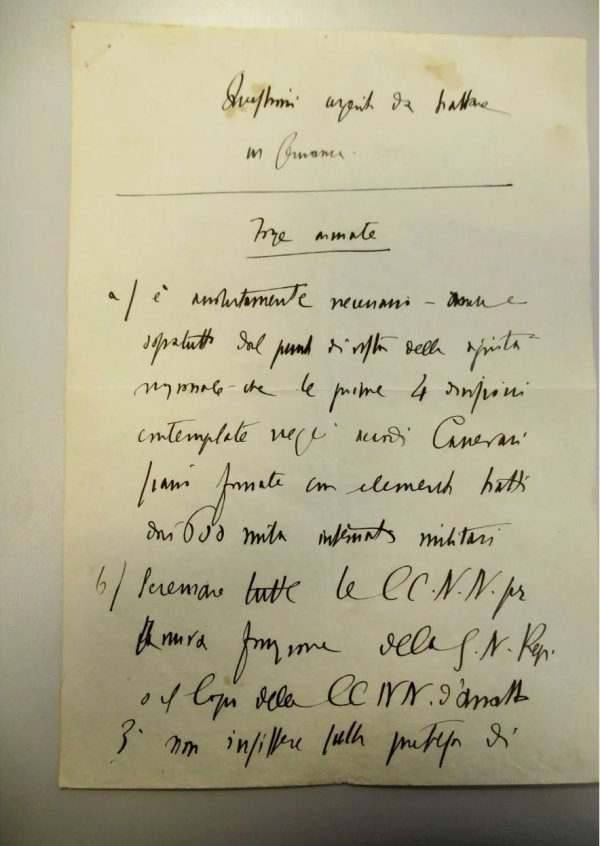 Questioni urgenti da trattare
in Germania.
Forze armate
a/ è assolutamente necessario - anche e
sopratutto dal punto di vista della
nazionale - che le prime 4 divisioni
contemplate negli accordi Canevari
siano formate con elementi tratti
dai 600 mila internati militari
b/ Scremare tutte le CC.N.N. per
la nuova funzione della G.N.Rep.
o il Corpo della CC NN. d'assalto
3. non insistere sulla pretesa di